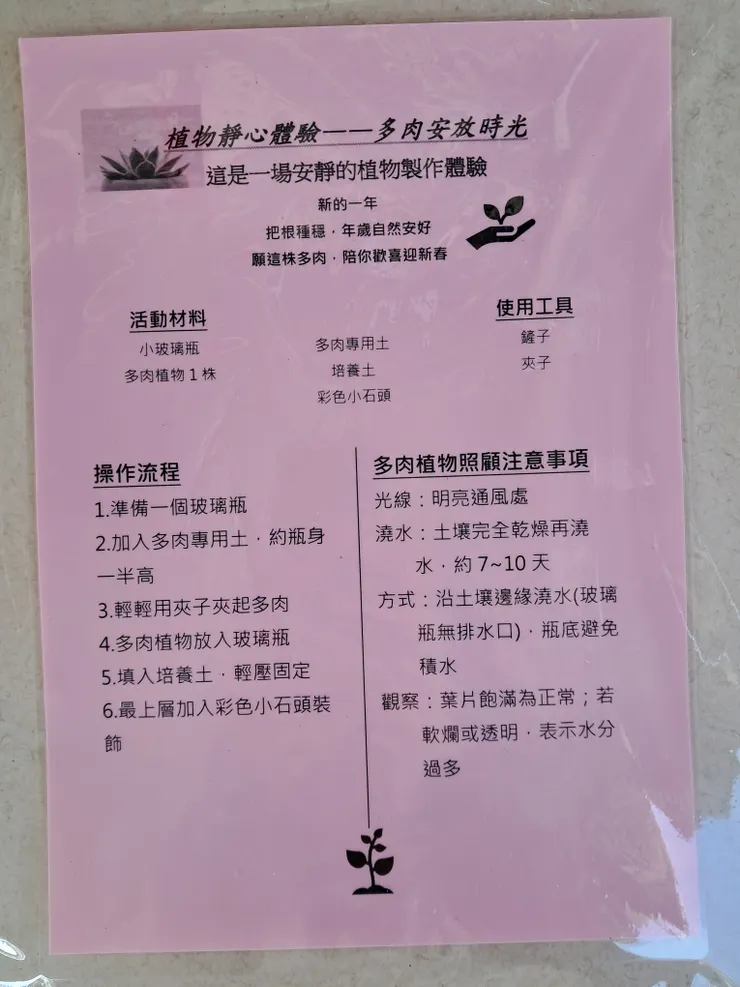 植物靜心體驗——多肉安放時光
這是一場安靜的植物製作體驗
新的一年
把根種穩，年歲自然安好
願這株多肉，陪你歡喜迎新春
活動材料
小玻璃瓶
多肉植物 1 株
多肉專用土
培養土
彩色小石頭
使用工具
鏟子
夾子
操作流程
1.準備一個玻璃瓶
2.加入多肉專用土，約瓶身
一半高
3.輕輕用夾子夾起多肉
4.多肉植物放入玻璃瓶
5.填入培養土，輕壓固定
6.最上層加入彩色小石頭裝
飾
多肉植物照顧注意事項
光線：明亮通風處
澆水：土壤完全乾燥再澆
水，約 7~10 天
方式：沿土壤邊緣澆水(玻璃
瓶無排水口)，瓶底避免
積水
觀察：葉片飽滿為正常；若
軟爛或透明，表示水分
過多